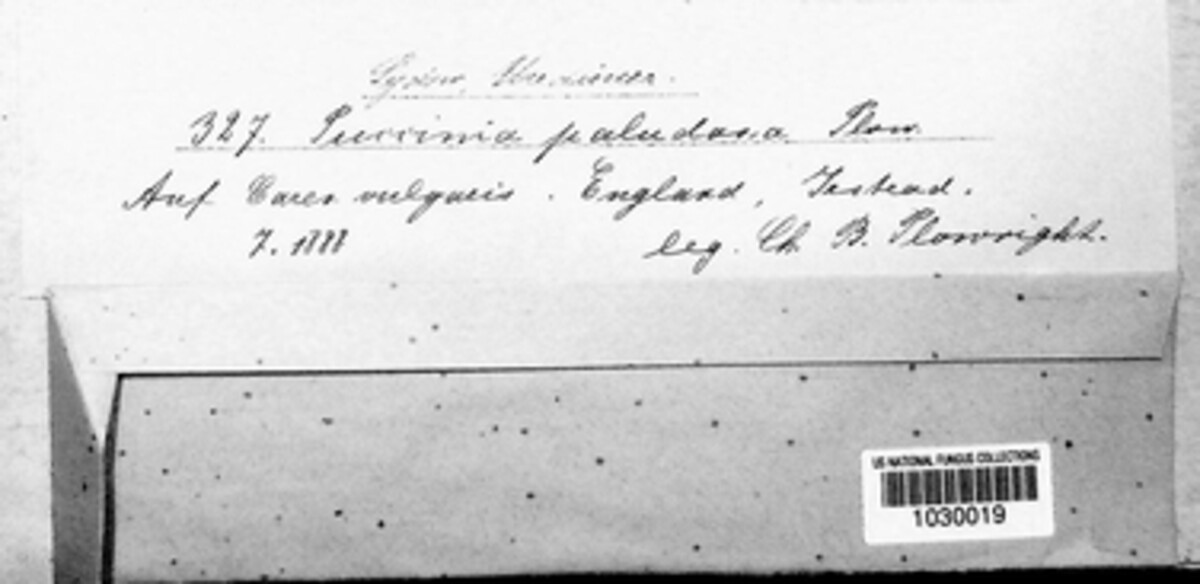 Sydow, Uredineen.
327. Puccinia paludosa Plow.
Auf Carex vulgaris. England, Irstead.
7. 1888
leg. Ch. B. Plowright.
US NATIONAL FUNGUS COLLECTIONS
1030019